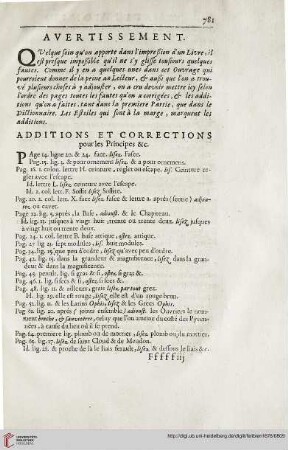 781
AVERTISSEMENT.
QUelque soin qu'on apporte dans l'impression d'un Livre, il
est presque impossible qu'il ne s'y glisse tousjours quelques
fautes. Comme il y en a quelques unes dans cet Ouvrage qui
pourroient donner de la peine au Lecteur, & aussi que l'on a trou-
vé plusieurs choses à y adjouster, on a cru devoir mettre icy selon
l'ordre des pages toutes les fautes qu'on a corrigées, & les addi-
tions qu'on a faites, tant dans la premiere Partie, que dans le
Dictionnaire. Les Estoiles qui sont à la marge, marquent les
additions.
ADDITIONS ET CORRECTIONS
pour les Principes &c.
PAge 14. ligne 20. & 24. face. lisez. Fasce.
Pag. 15. lig. 3. & pour ornement lisez, & a pour ornement.
Pag. 16. 1. colon. lettre H. ceinture, reglet ou escape, lis. Ceinture re-
glet avec l'escape.
Id. lettre L. lisez, ceinture avec l'escape.
Id. 2. col. lett. P. Soffit lisez Sofite.
Pag. 20. 2. col. lett. X. face lisez. fasce & lettre a. après (scotie) adjou-
tez, ou cavet.
Page 22. lig. 9. après, la Base, adjoust. & le Chapiteau.
Id. lig. 12. jusques à vingt huit, trente ou trente deux, lisez jusques
à vingt huit ou trente deux.
Pag. 24. 1. col. lettre B. base attique, ostez, attique.
Pag. 32. lig. 21. sept modules, lis. huit modules.
Pag. 34. lig. 15. que peu d'ordre, lisez qu'avec peu d'ordre.
Pag. 42. lig. 15. dans la grandeur & magnificence, lisez dans la gran-
deur & dans la magnificence.
Pag. 43. penult. lig. si gras & si, ostez. si gras &.
Pag. 46. 1. lig. sisses & si, ostez si.
Pag. 48. lig. 11. & ailleurs, grets lisez, par tout grez.
Id. lig. 29. elle est rouge, lisez elle est d'un rouge brun.
Pag. 52. lig. 11. & les Latins Ophis, lisez & les Grecs Ophis.
Pag. 61. lig. 22. après / jointe ensemble / adjoust. les Ouvriers le nom-
ment breche, & sauveterre, celuy que l'on ameine du costé des Pyren-
nées, à cause du lieu où il se prend.
Pag. 64. premiere lig. plomb ou de mortier, lisez, plomb ou du mortier.
Pag. 65. lig. 17. lisez, de saint Cloud & de Meudon.
Id. lig. 25. & proche de là le bois ferault, lisez, & dessous le bois &c.
Fffffiij
http://digi.ub.uni-heidelberg.de/diglit/felibien1676/0805